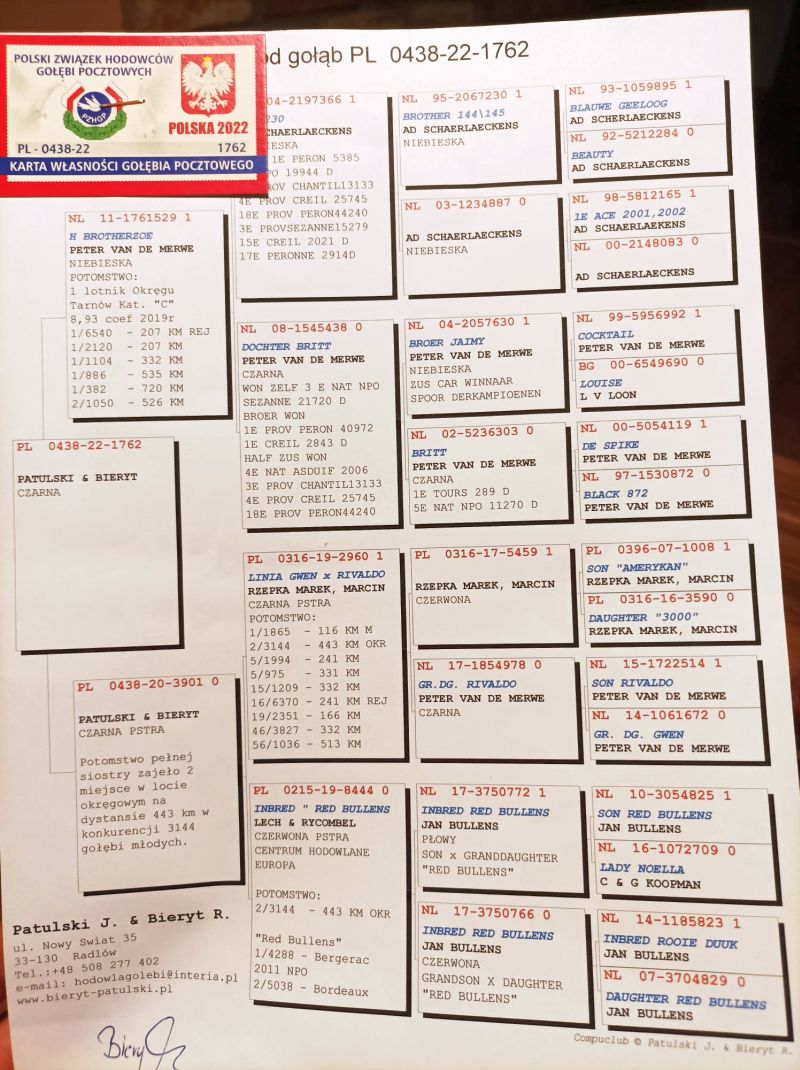 POLSKI ZWIĄZEK HODOWCÓW
GOŁĘBI POCZTOWYCH
PZHGP
POLSKA 2022
PL - 0438-22 1762
KARTA WŁASNOŚCI GOŁĘBIA POCZTOWEGO
gołąb PL 0438-22-1762
PL 0438-22-1762
PATULSKI & BIERYT
CZARNA
NL 11-1761529 1
H BROTHERZOE
PETER VAN DE MERWE
NIEBIESKA
POTOMSTWO:
1 lotnik Okręgu
Tarnów Kat. "C"
8,93 coef 2019r
1/6540 - 207 KM REJ
1/2120 - 207 KM
1/1104 - 332 KM
1/886 - 535 KM
1/382 - 720 KM
2/1050 - 526 KM
PL 0438-20-3901 0
PATULSKI & BIERYT
CZARNA PSTRA
Potomstwo pełnej
siostry zajeło 2
miejsce w locie
okręgowym na
dystansie 443 km w
konkurencji 3144
gołębi młodych.
04-2197366 1
230
AD SCHAERLAECKENS
1E PERON 5385
19944 D
PROV CHANTIL13133
4E PROV CREIL 25745
18E PROV PERON44240
3E PROVSEZANNE15279
15E CREIL 2021 D
17E PERONNE 2914D
NL 08-1545438 0
DOCHTER BRITT
PETER VAN DE MERWE
CZARNA
WON ZELF 3 E NAT NPO
SEZANNE 21720 D
BROER WON
1E PROV PERON 40972
1E CREIL 2843 D
HALF ZUS WON
4E NAT ASDUIF 2006
3E PROV CHANTIL13133
4E PROV CREIL 25745
18E PROV PERON44240
PL 0316-19-2960 1
LINIA GWEN x RIVALDO
RZEPKA MAREK, MARCIN
CZARNA PSTRA
POTOMSTWO:
1/1865 - 116 KM M
2/3144 - 443 KM OKR
5/1994 - 241 KM
5/975 - 331 KM
15/1209 - 332 KM
16/6370 - 241 KM REJ
19/2351 - 166 KM
46/3827 - 332 KM
56/1036 - 513 KM
PL 0215-19-8444 0
INBRED " RED BULLENS
LECH & RYCOMBEL
CZERWONA PSTRA
CENTRUM HODOWLANE
EUROPA
POTOMSTWO:
2/3144 - 443 KM OKR
"Red Bullens"
1/4288 - Bergerac
2011 NPO
2/5038 - Bordeaux
NL 95-2067230 1
BROTHER 144\145
AD SCHAERLAECKENS
NIEBIESKA
NL 03-1234887 0
AD SCHAERLAECKENS
NIEBIESKA
NL 04-2057630 1
BROER JAIMY
PETER VAN DE MERWE
NIEBIESKA
ZUS CAR WINNAAR
SPOOR DERKAMPIOENEN
NL 02-5236303 0
BRITT
PETER VAN DE MERWE
CZARNA
1E TOURS 289 D
5E NAT NPO 11270 D
PL 0316-17-5459 1
RZEPKA MAREK, MARCIN
CZERWONA
NL 17-1854978 0
GR.DG. RIVALDO
PETER VAN DE MERWE
CZARNA
NL 17-3750772 1
INBRED RED BULLENS
JAN BULLENS
PŁOWY
SON x GRANDDAUGHTER
"RED BULLENS"
NL 17-3750766 0
INBRED RED BULLENS
JAN BULLENS
CZERWONA
GRANDSON X DAUGHTER
"RED BULLENS"
NL 93-1059895 1
BLAUWE GEELOOG
AD SCHAERLAECKENS
NL 92-5212284 0
BEAUTY
AD SCHAERLAECKENS
NL 98-5812165 1
1E ACE 2001,2002
AD SCHAERLAECKENS
NL 00-2148083 0
AD SCHAERLAECKENS
NL 99-5956992 1
COCKTAIL
PETER VAN DE MERWE
BG 00-6549690 0
LOUISE
L V LOON
NL 00-5054119 1
DE SPIKE
PETER VAN DE MERWE
NL 97-1530872 0
BLACK 872
PETER VAN DE MERWE
PL 0396-07-1008 1
SON "AMERYKAN"
RZEPKA MAREK, MARCIN
PL 0316-16-3590 0
DAUGHTER "3000"
RZEPKA MAREK, MARCIN
NL 15-1722514 1
SON RIVALDO
PETER VAN DE MERWE
NL 14-1061672 0
GR. DG. GWEN
PETER VAN DE MERWE
NL 10-3054825 1
SON RED BULLENS
JAN BULLENS
NL 16-1072709 0
LADY NOELLA
C & G KOOPMAN
NL 14-1185823 1
INBRED ROOIE DUUK
JAN BULLENS
NL 07-3704829 0
DAUGHTER RED BULLENS
JAN BULLENS
Patulski J. & Bieryt R.
ul. Nowy Swiat 35
33-130 Radłów
Tel.:+48 508 277 402
e-mail: hodowlagolebi@interia.pl
www.bieryt-patulski.pl
Compuclub © Patulski J. & Bieryt R.